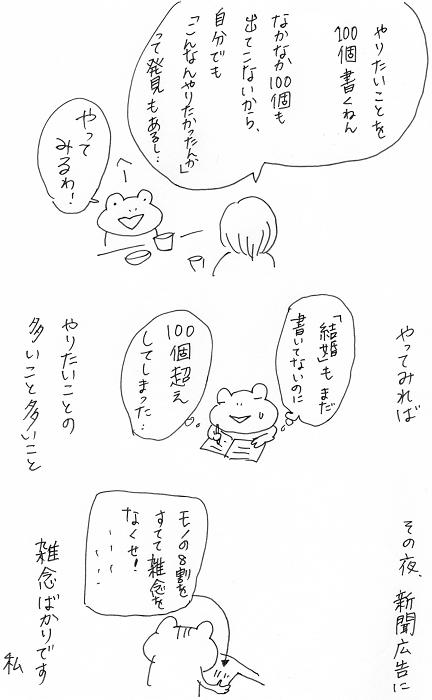 やりたいことを
100個書くねん
なかなか100個も
出てこないから、
自分でも
「こんなんやりたかったんか」
って発見もあるし…
やって
みるわ!
やってみれば
「結婚」もまだ
書いてないのに
100個超え
してしまった…
やりたいことの
多いこと多いこと
その夜、新聞広告に
モノの8割を
すてて雑念を
なくせ!
雑念ばかりです
私